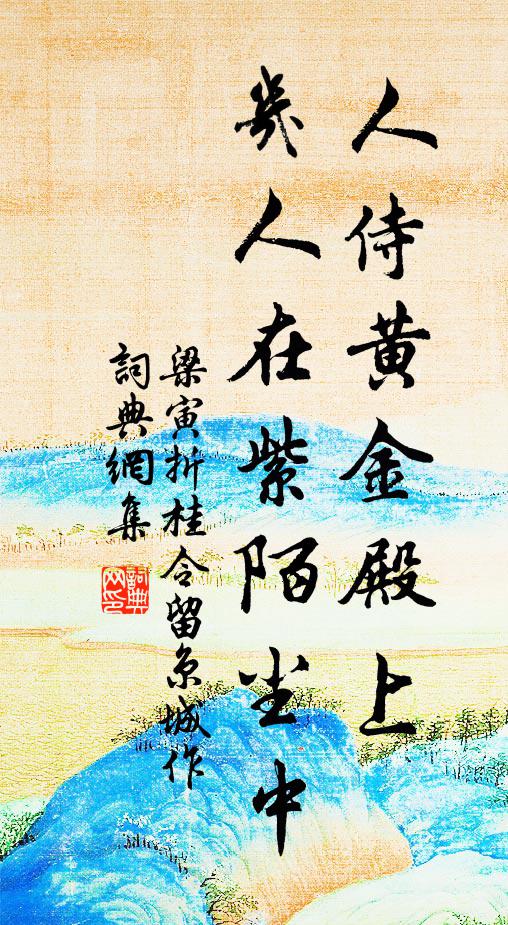 人侍黃金殿上
幾人在紫陌尘中
梁寅折桂令留京城作
詞典網集
詞典
网印